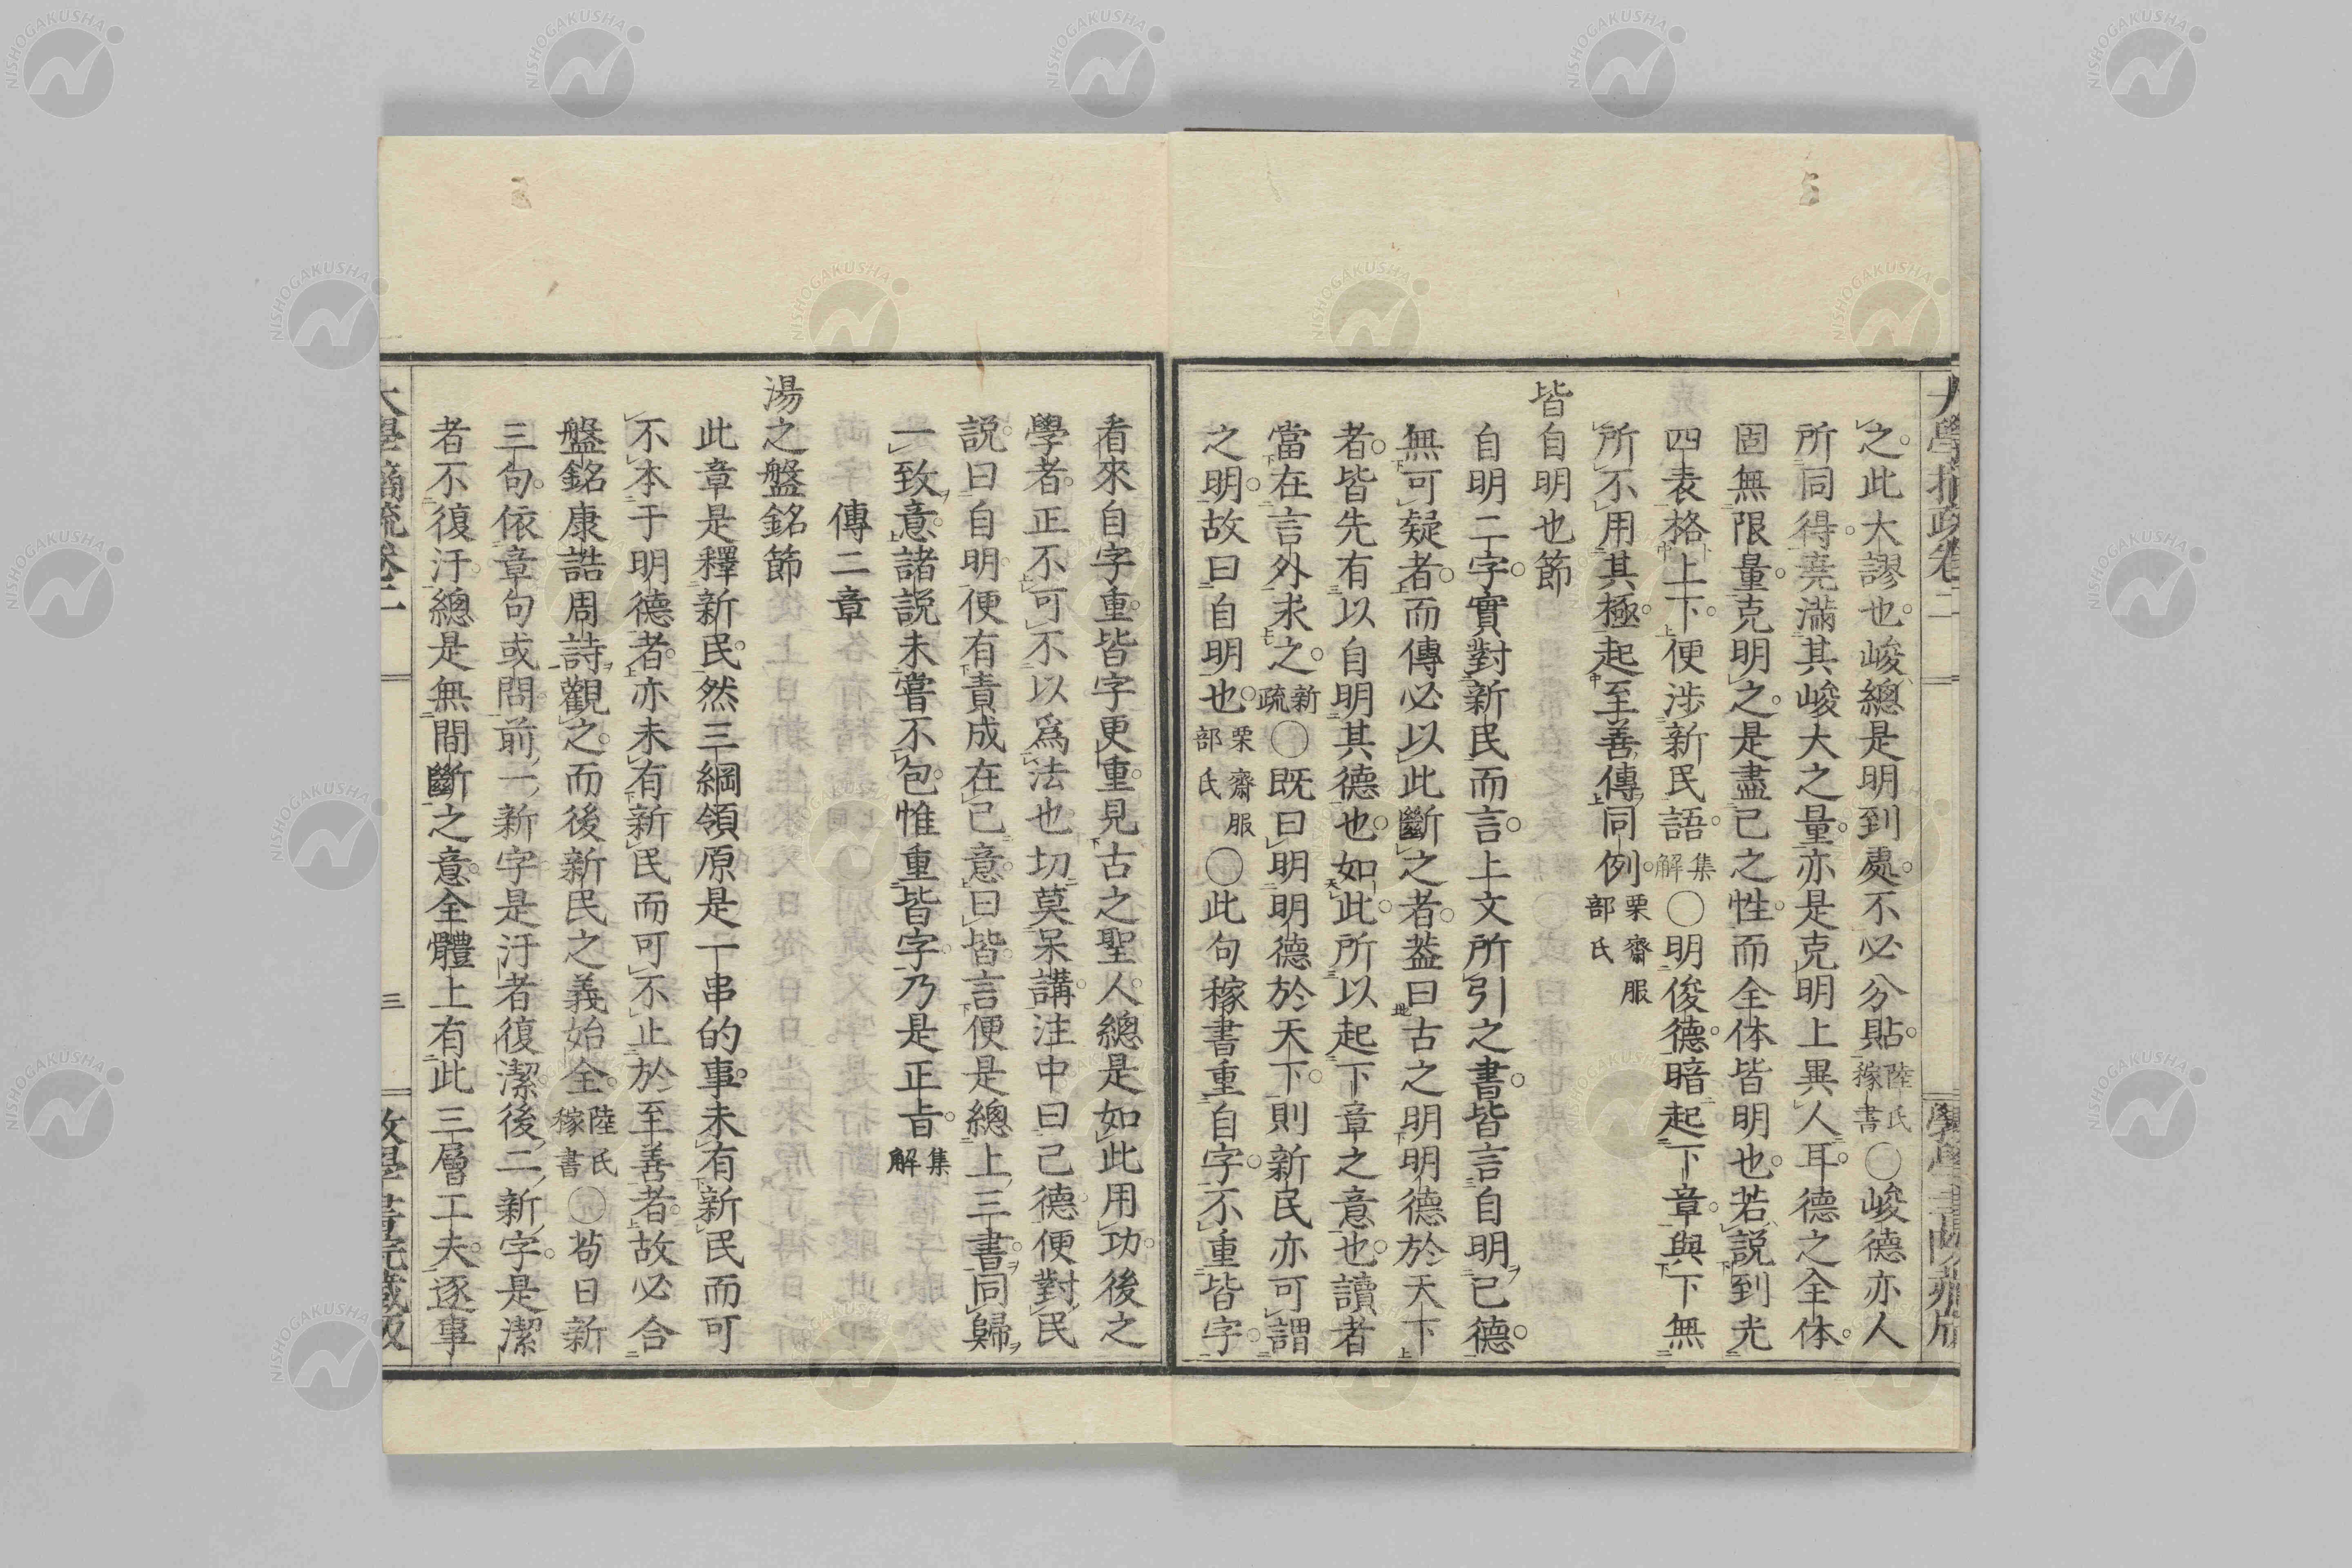 之此大謬也峻總是明到處不必分貼陸氏稼書○峻德亦人
所同得堯滿其峻大之量亦是克明上異人耳德之全体
固無限量克明之是盡己之性而全体皆明也若説到光
四表格上下便涉新民語集解○明俊德暗起下章與下無
所不用其極起至善傳同例栗齋服部氏
皆自明也節
自明二字實對新民而言上文所引之書皆言自明己德
無可疑者而傳必以此斷之者蓋曰古之明明德於天下
者皆先有以自明其德也如此所以起下章之意也讀者
當在言外求之新疏○既曰明明德於天下則新民亦可謂
之明故曰自明也栗齋服部氏○此句稼書重自字不重皆字
看來自字重皆字更重見古之聖人總是如此用功後之
學者正不可不以爲法也切莫呆講注中曰己德便對民
説曰自明便有責成在己意曰皆言便是總上三書同歸
一致意諸説未嘗不包惟重皆字乃是正旨集解
傳二章
湯之盤銘節
此章是釋新民然三綱領原是一串的事未有新民而可
不本于明德者亦未有新民而可不止於至善者故必合
盤銘康誥周詩觀之而後新民之義始全陸氏稼書○苟日新
三句依章句或問前一新字是汙者復潔後二新字是潔
者不復汙總是無間斷之意全體上有此三層工夫逐事
三